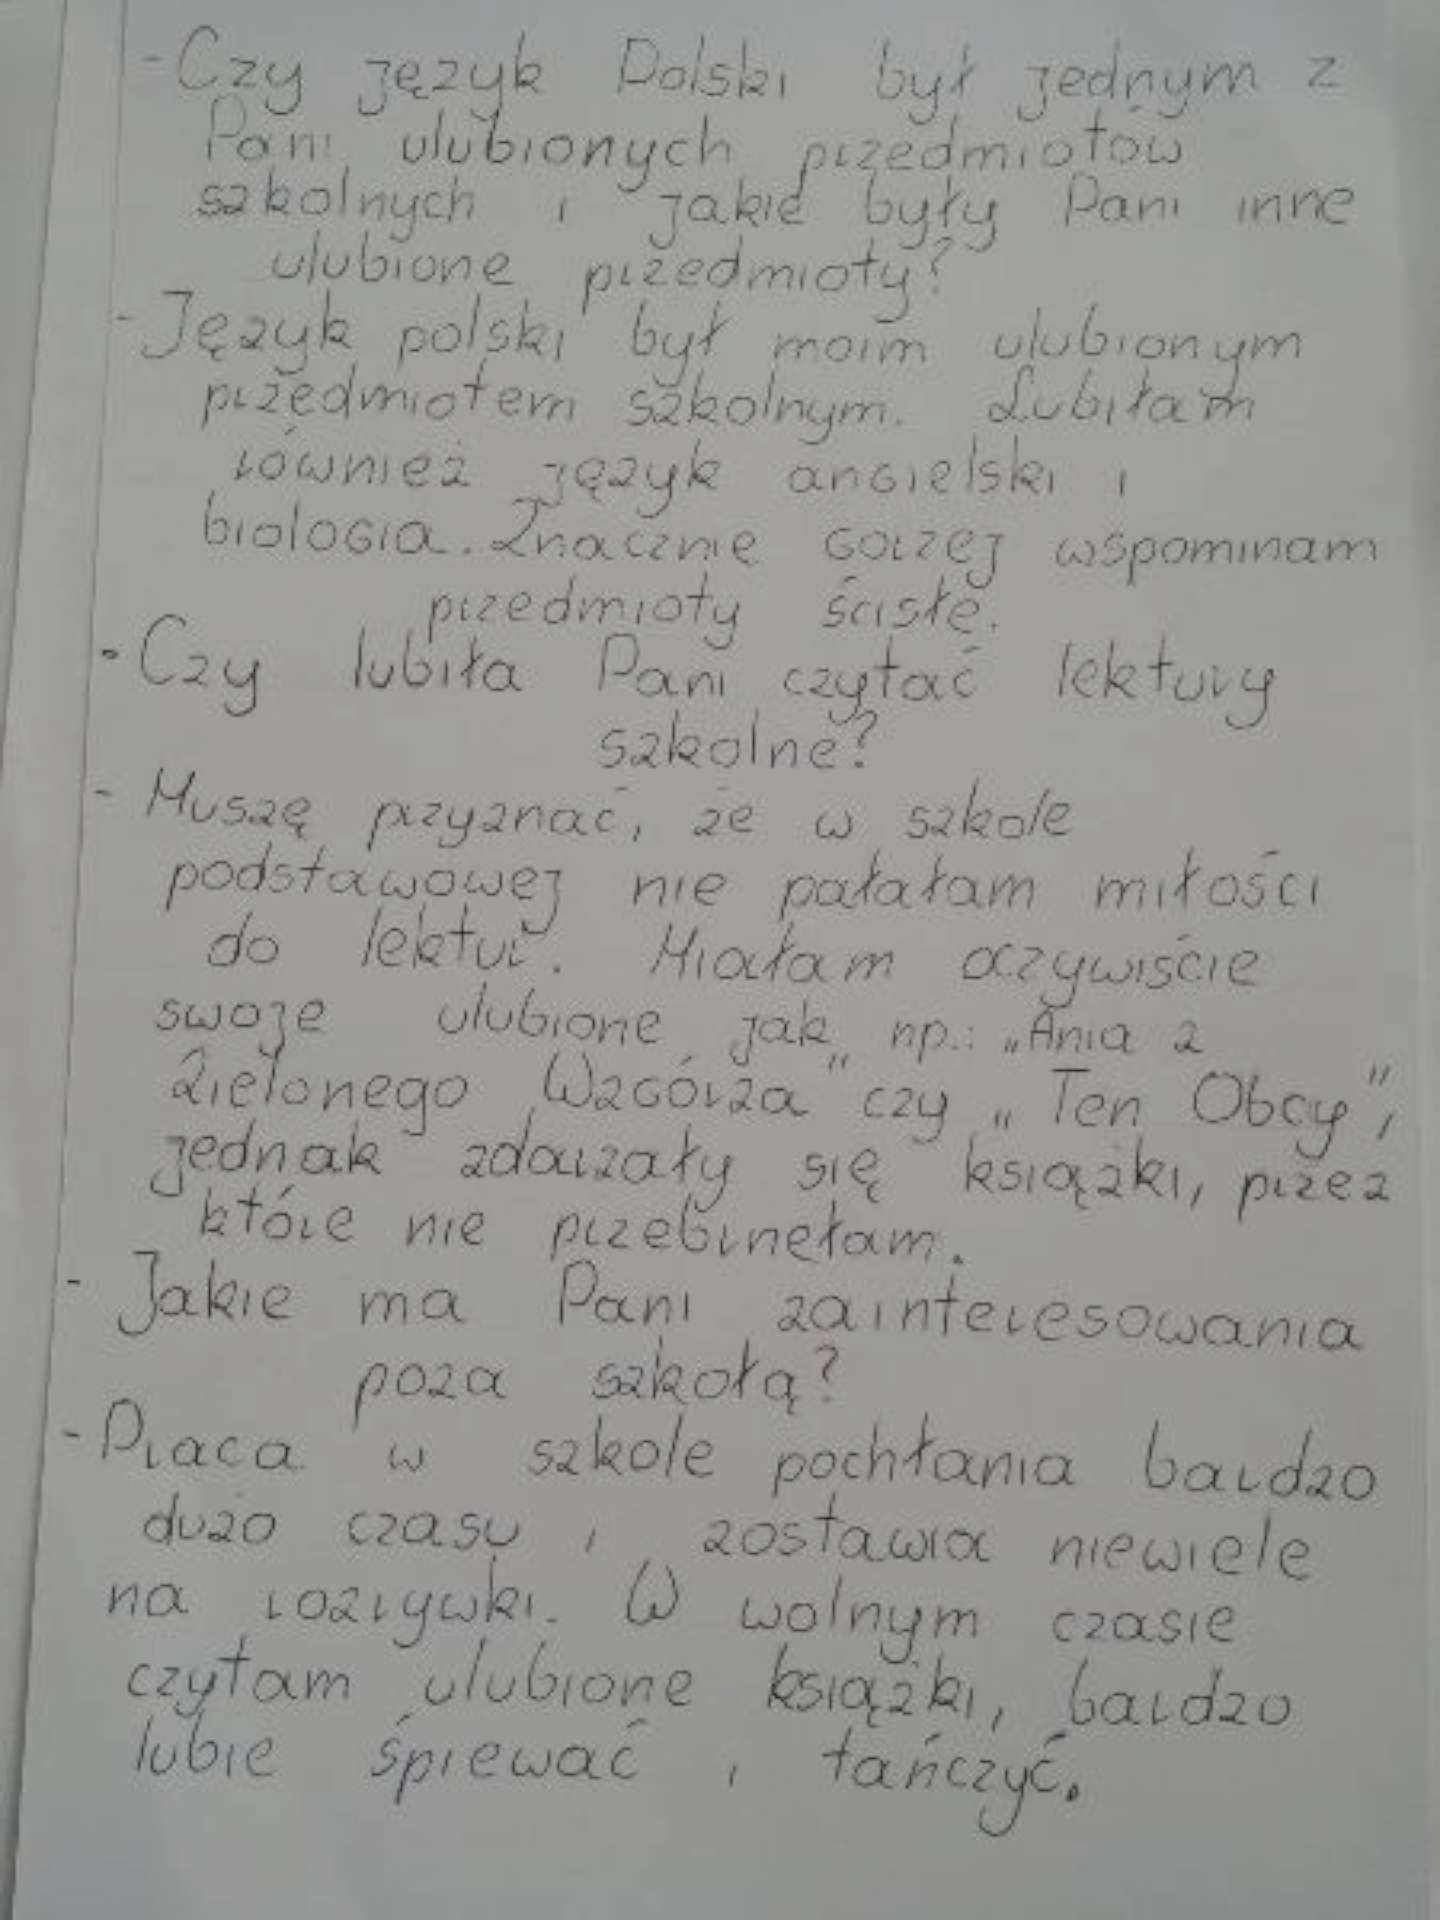 - Czy język Polski był jednym z
Pani ulubionych przedmiotów
szkolnych i jakie były Pani inne
ulubione przedmioty?
- Język polski był moim ulubionym
przedmiotem szkolnym. Lubiłam
również język angielski i
biologia. Znacznie gorzej wspominam
przedmioty ścisłe.
- Czy lubiła Pani czytać lektury
szkolne?
- Muszę przyznać, że w szkole
podstawowej nie pałałam miłości
do lektur. Miałam oczywiście
swoje ulubione jak np.: „Ania z
Zielonego Wzgórza" czy „Ten Obcy",
jednak zdarzały się książki, przez
które nie przebrnełam.
- Jakie ma Pani zainteresowania
poza szkołą?
- Praca w szkole pochłania bardzo
dużo czasu i zostawia niewiele
na rozrywki. W wolnym czasie
czytam ulubione książki, bardzo
lubie śpiewać i tańczyć.